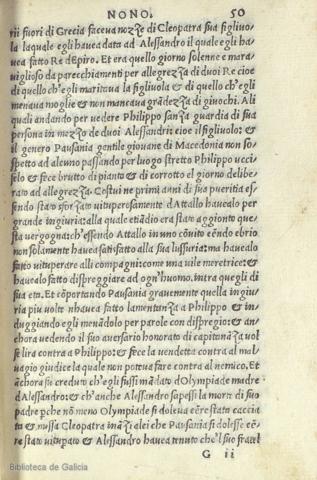 NONO. 50
rii fuori di Grecia faceva nozze di Cleopatra sua figliuo/
la laquale egli havea data ad Alessandro il quale egli ha/
vea fatto Re dEpiro. Et era quello giorno solenne e mara
viglioso da parecchiamenti per allegrezza di duoi Re cioe
di quello ch'egli maritava la figliuola & di quello ch'egli
menava moglie & non mancava grādezza di giuochi. Ali
quali andando per vedere Philippo sanza guardia di sua
persona in mezzo de duoi Alessandri cioe il figliuolo: &
il genero Pausania gentile giovane di Macedonia non so/
spetto ad alcuno passando per luogo stretto Philippo ucci
selo & fece brutto di pianto & di corrotto el giorno delibe/
rato ad allegrezza. Costui ne primi anni di sua pueritia es/
sendo stato sforzato vituperosamente dAttallo havealo per
grande ingiuria: alla quale etiādio era stato aggionto que/
sta vergogna: ch'essendo Attallo in uno cōvito cēndo ebrio
non solamente havea satisfatto alla sua lussuria: ma havealo
fatto vituperare alli compagni: come una vile meretrice: &
havealo fatto dispreggiare ad ogn'huomo. intra quegli di
sua eta. Et cōportando Pausania gravemente quella ingiu/
ria piu volte nhavea fatto lamentanza a Philippo & in/
duggiando egli menādolo per parole con dispregio: & an/
chora vedendo il suo aversario honorato di capitanāza vol
se lira contra a Philippo: & fece la vendetta contra al mal/
vagio giudice la quale non poteva fare contra al nemico. Et
āchora sie creduto ch'egli fussi mādato dOlympiade madre
dAlessandro: & ch'anche Alessandro sapessi la morte di suo
padre pche nō meno Olympiade si dolea eēre stata caccia
ta & messa Cleopatra ināzi alei che Pausania si dolesse eē/
re stato vituperato & Alessandro havea tenuto cho'l suo fratel
G ii
Biblioteca de Galicia